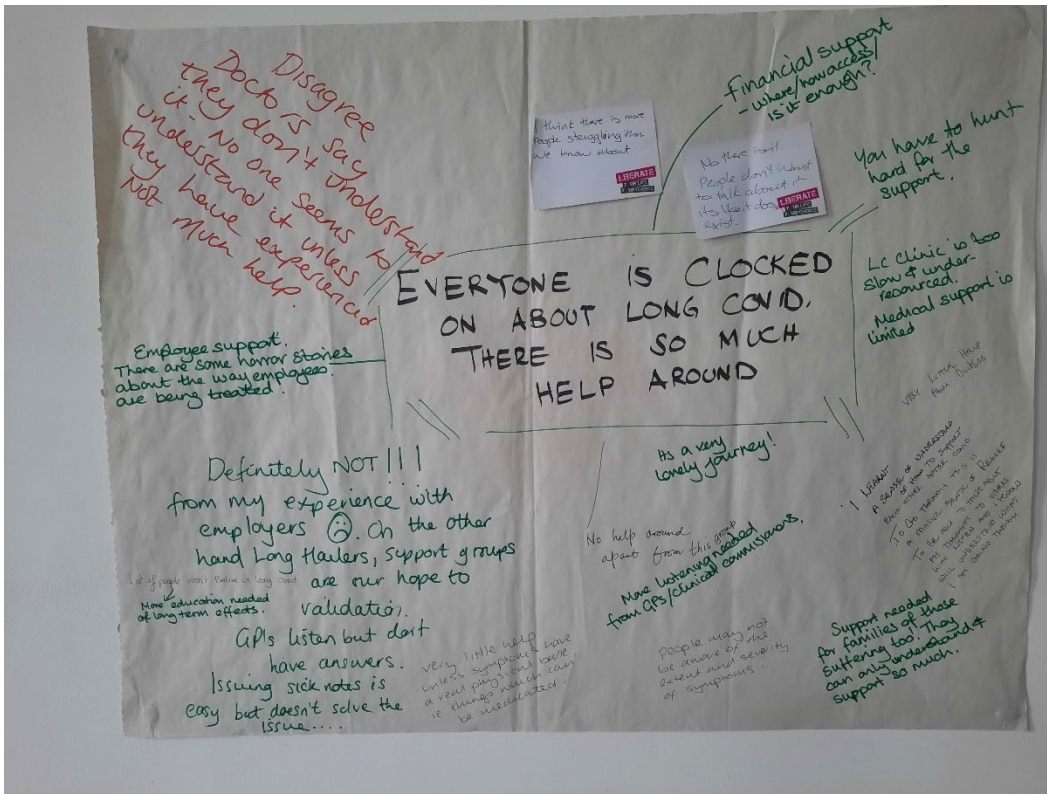 Disagree
Doctors say
they don't understand
it. No one seems to
understand it unless
they have experienced
Not much help.
I think there is more
people struggling than
we know about
LIBERATE
Financial support
- where/how access/
is it enough?
No there isn't.
People don't want
to talk about it
its like it
exist.
LIBERATE
You have to hunt
hard for the
support.
EVERYONE IS CLOCKED
ON ABOUT LONG COVID.
THERE IS SO MUCH
HELP AROUND
Lc Clinic is too
slow & under-
resourced.
Medical support is
limited
Employee support.
There are some horror stories
about the way employees
are being treated!
VERY LITTLE HELP
FROM DOCTORS
Definitely NOT!!!
from my experience with
employers ☹. On the other
hand Long Haulers, support groups
are our hope to
validation.
GP's listen but don't
have answers.
Issuing sick notes is
easy but doesn't solve the
issue....
Lot of people don't believe in Long Covid
More education needed
of long term effects.
Its a very
lonely journey!
No help around
apart from this group
More listening needed
from GPs/clinical commissioners.
I LEARNT
A SENSE OF UNDERSTAND
OF HOW TO SUPPORT
EACH OTHER AFTER COVID
TO GO THROUGH THIS IS
A SENSE OF RELIEF
TO BE ABLE TO TALK ABOUT
MY THOUGHTS TO OTHERS
WHO LISTEN AND I KNOW
WILL UNDERSTAND WHAT
I AM GOING THROUGH
very little help
unless symptoms have
a real physical base,
ie things which can
be medicated.
People may not
be aware of the
extent and severity
of symptoms.
Support needed
for families of those
suffering too. They
can only understand &
support so much.